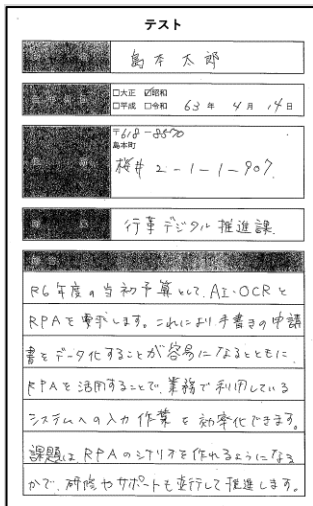 テスト
島本太郎
□大正 ☑昭和
□平成 □令和 63年 4月 14日
〒618-8570
島本町
桜井2-1-1-907
行革デジタル推進課
R6年度の当初予算として、AI-OCRと
RPAを要求します。これにより手書きの申請
書をデータ化することが容易になるとともに、
RPAを活用することで、業務で利用している
システムへの入力作業を効率化できます。
課題は、RPAのシナリオを作れるようになる
かで、研修やサポートも並行して推進します。